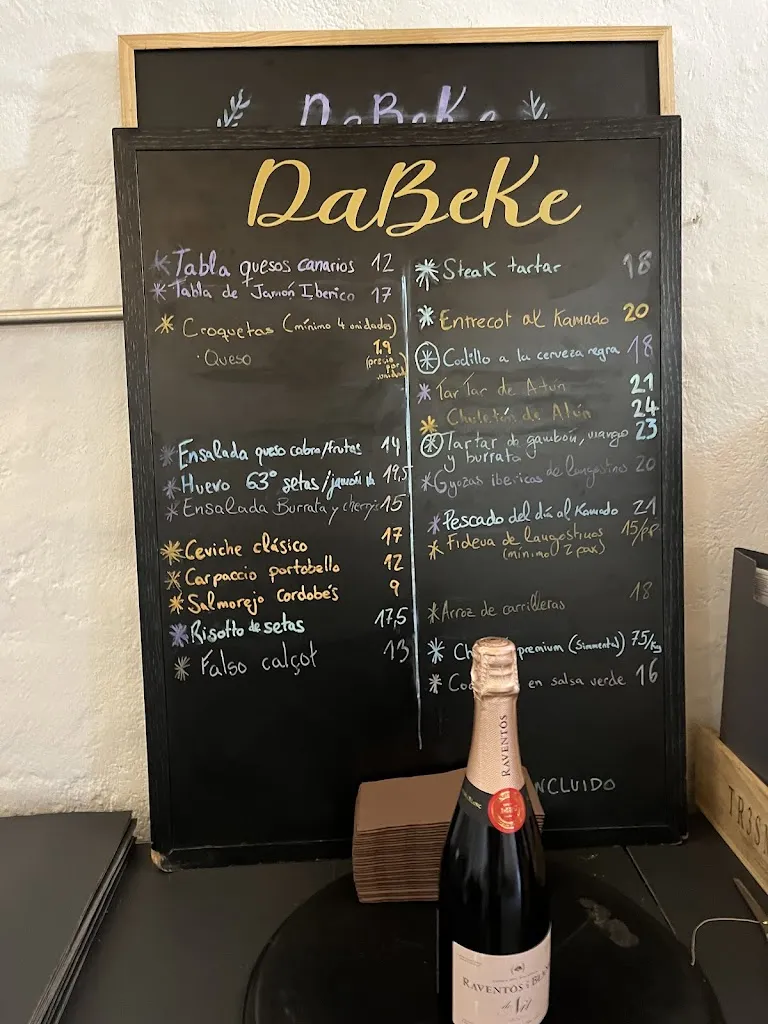 DaBeKe
DaBeKe
Tabla quesos canarios 12
Tabla de Jamón Iberico 17
Croquetas (mínimo 4 unidades)
· Queso 1,9
(precio
por
unidad)
Ensalada queso cabra/frutas 14
Huevo 63º setas/jamón ib 19,5
Ensalada Burrata y cherrys 15
Ceviche clásico 17
Carpaccio portobello 12
Salmorejo Cordobés 9
Risotto de setas 17,5
Falso calçot 13
Steak tartar 18
Entrecot al Kamado 20
Codillo a la cerveza negra 18
TarTar de Atún 21
Chuletón de Atún 24
Tartar de gambón, mango 23
y burrata
Gyozas ibericas de langostino 20
Pescado del día al Kamado 21
Fideua de langostinos 15/pp
(mínimo 2 pax)
Arroz de carrilleras 18
premium (Simmental) 75/Kg
en salsa verde 16
NCLUIDO
RAVENTÓS
RAVENTÓS i BLANC
de Nit
TR3SM